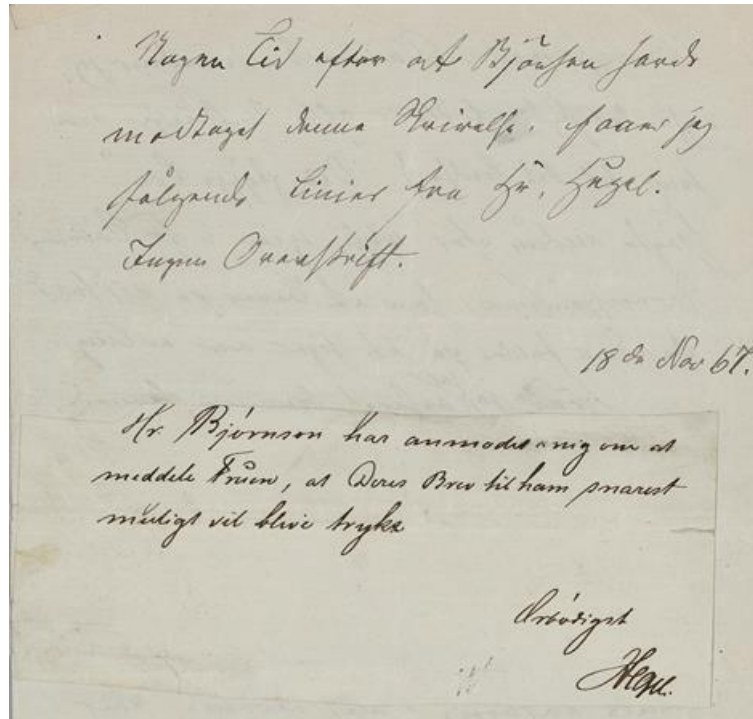 Nogen Tid efter at Bjönsen havde
modtaget denne Skrivelse, faaer jeg
følgende Linier fra Hr. Hegel.
Ingen Overskrift.
18 de Nov 67.
Hr. Bjørnson har anmodet mig om at
meddele Fruen, at Deres Brev til ham snarest
muligt vil blive trykt
Ærbødigst
Hegel.